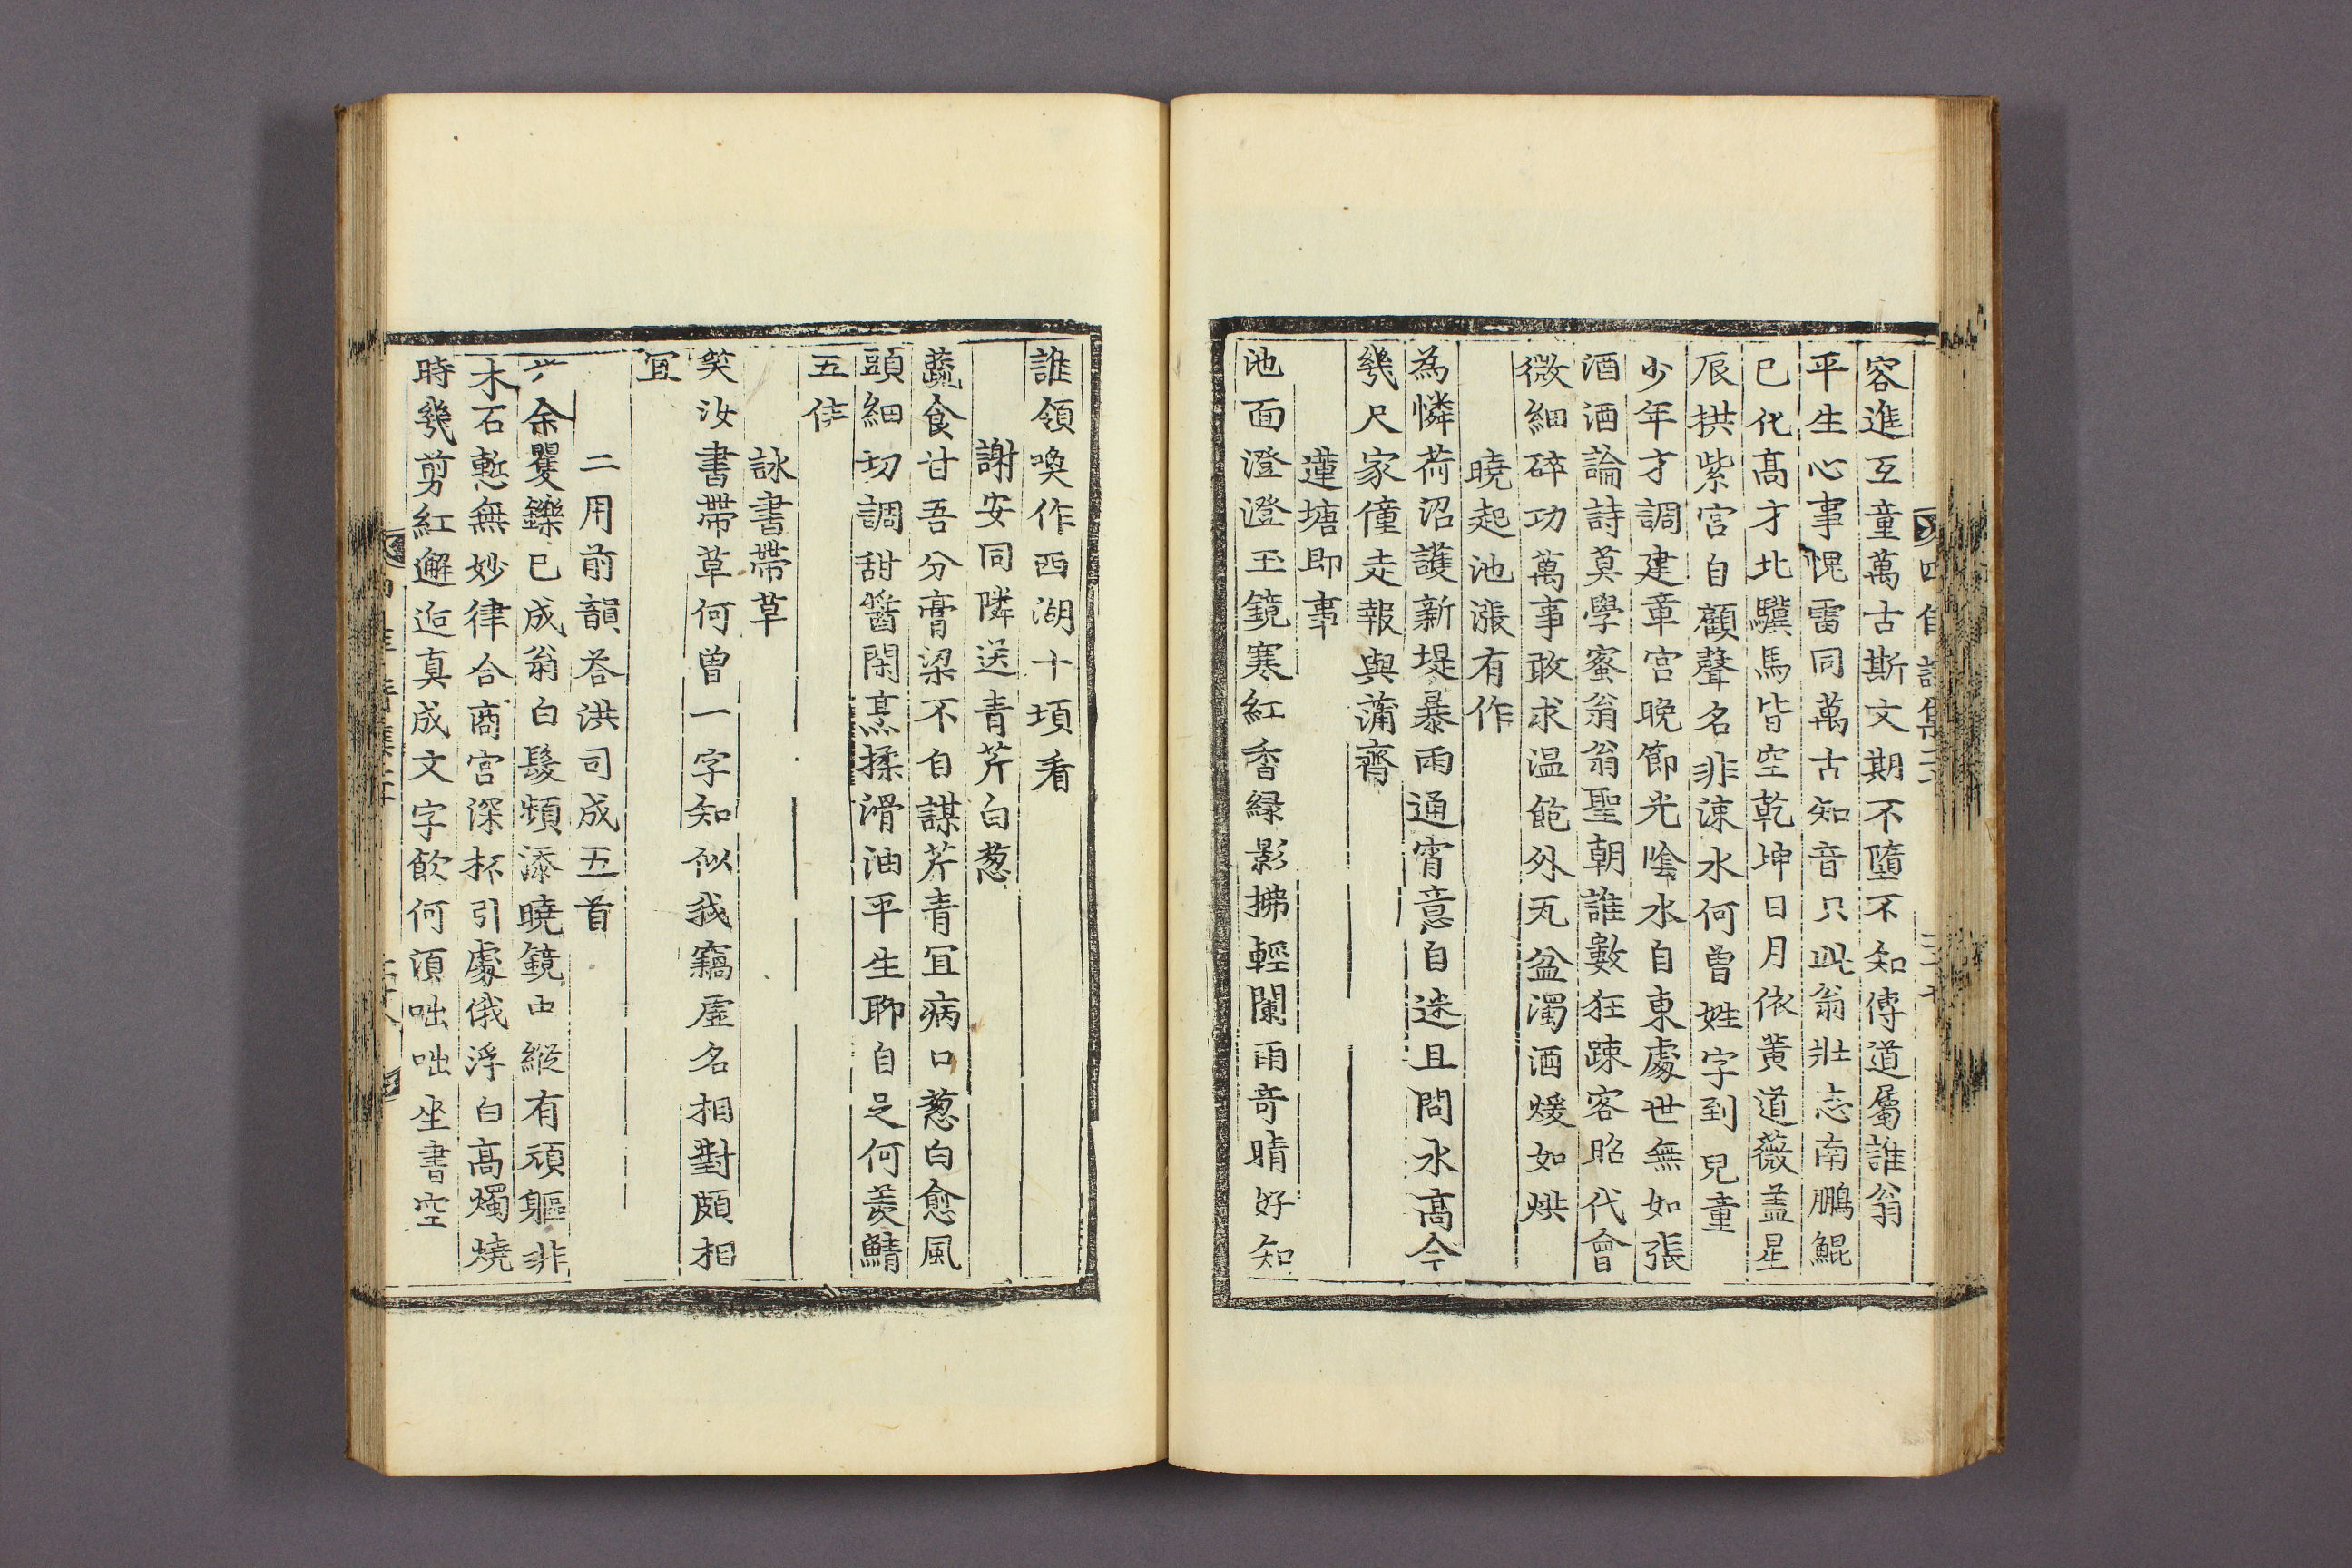 容進互童萬古斯文期不墮不知傳道屬誰翁
平生心事愧雷同萬古知音只此翁壯志南鵬鯤
已化高才北驥馬皆空乾坤日月依黃道薇盖星
辰拱紫宮自顧聲名非涑水何曾姓字到兒童
少年才調建章宮晚節光陰水自東處世無如張
酒酒論詩莫學蜜翁翁聖朝誰數狂踈客昭代會
微細碎功萬事敢求溫飽外瓦盆濁酒煖如烘
曉起池漲有作
為憐荷沼護新堤暴雨通宵意自迷且問水高今
幾尺家僮走報與蒲齊
蓮塘即事
池面澄澄玉鏡寒紅香綠影拂輕闌雨奇晴好知
誰領喚作西湖十頃看
謝安同隣送青芹白葱
蔬食甘吾分膏粱不自謀芹青冝病口葱白愈風
頭細切調甜醬閑烹揉滑油平生聊自足何羨鯖
五侯
詠書帶草
笑汝書帶草何曾一字知似我竊虛名相對頗相
冝
二用前韻荅洪司成五首
余矍鑠已成翁白髮頻添曉鏡中縱有頑軀非
木石慙無妙律合商宮深杯引處俄浮白高燭燒
時幾剪紅邂逅真成文字飲何須咄咄坐書空